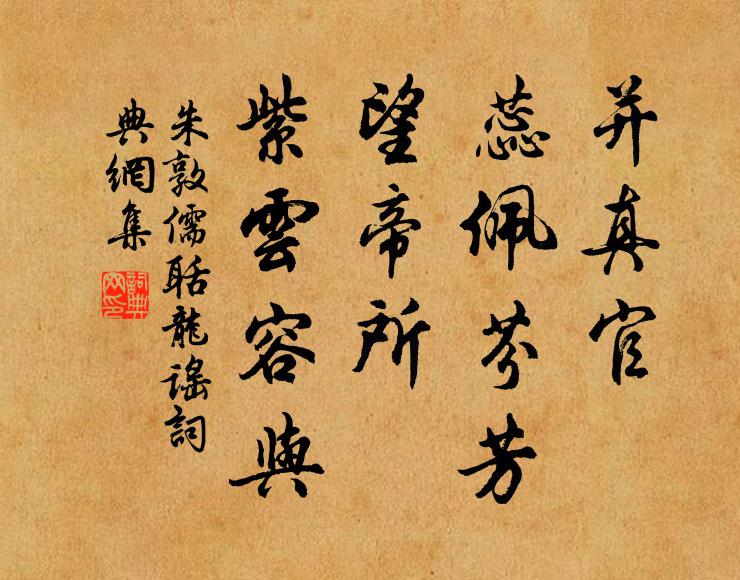 并真官
蕊佩芬芳
望帝所
紫雲容與
朱敦儒聒龍謠詞
典網集
詞典
网印